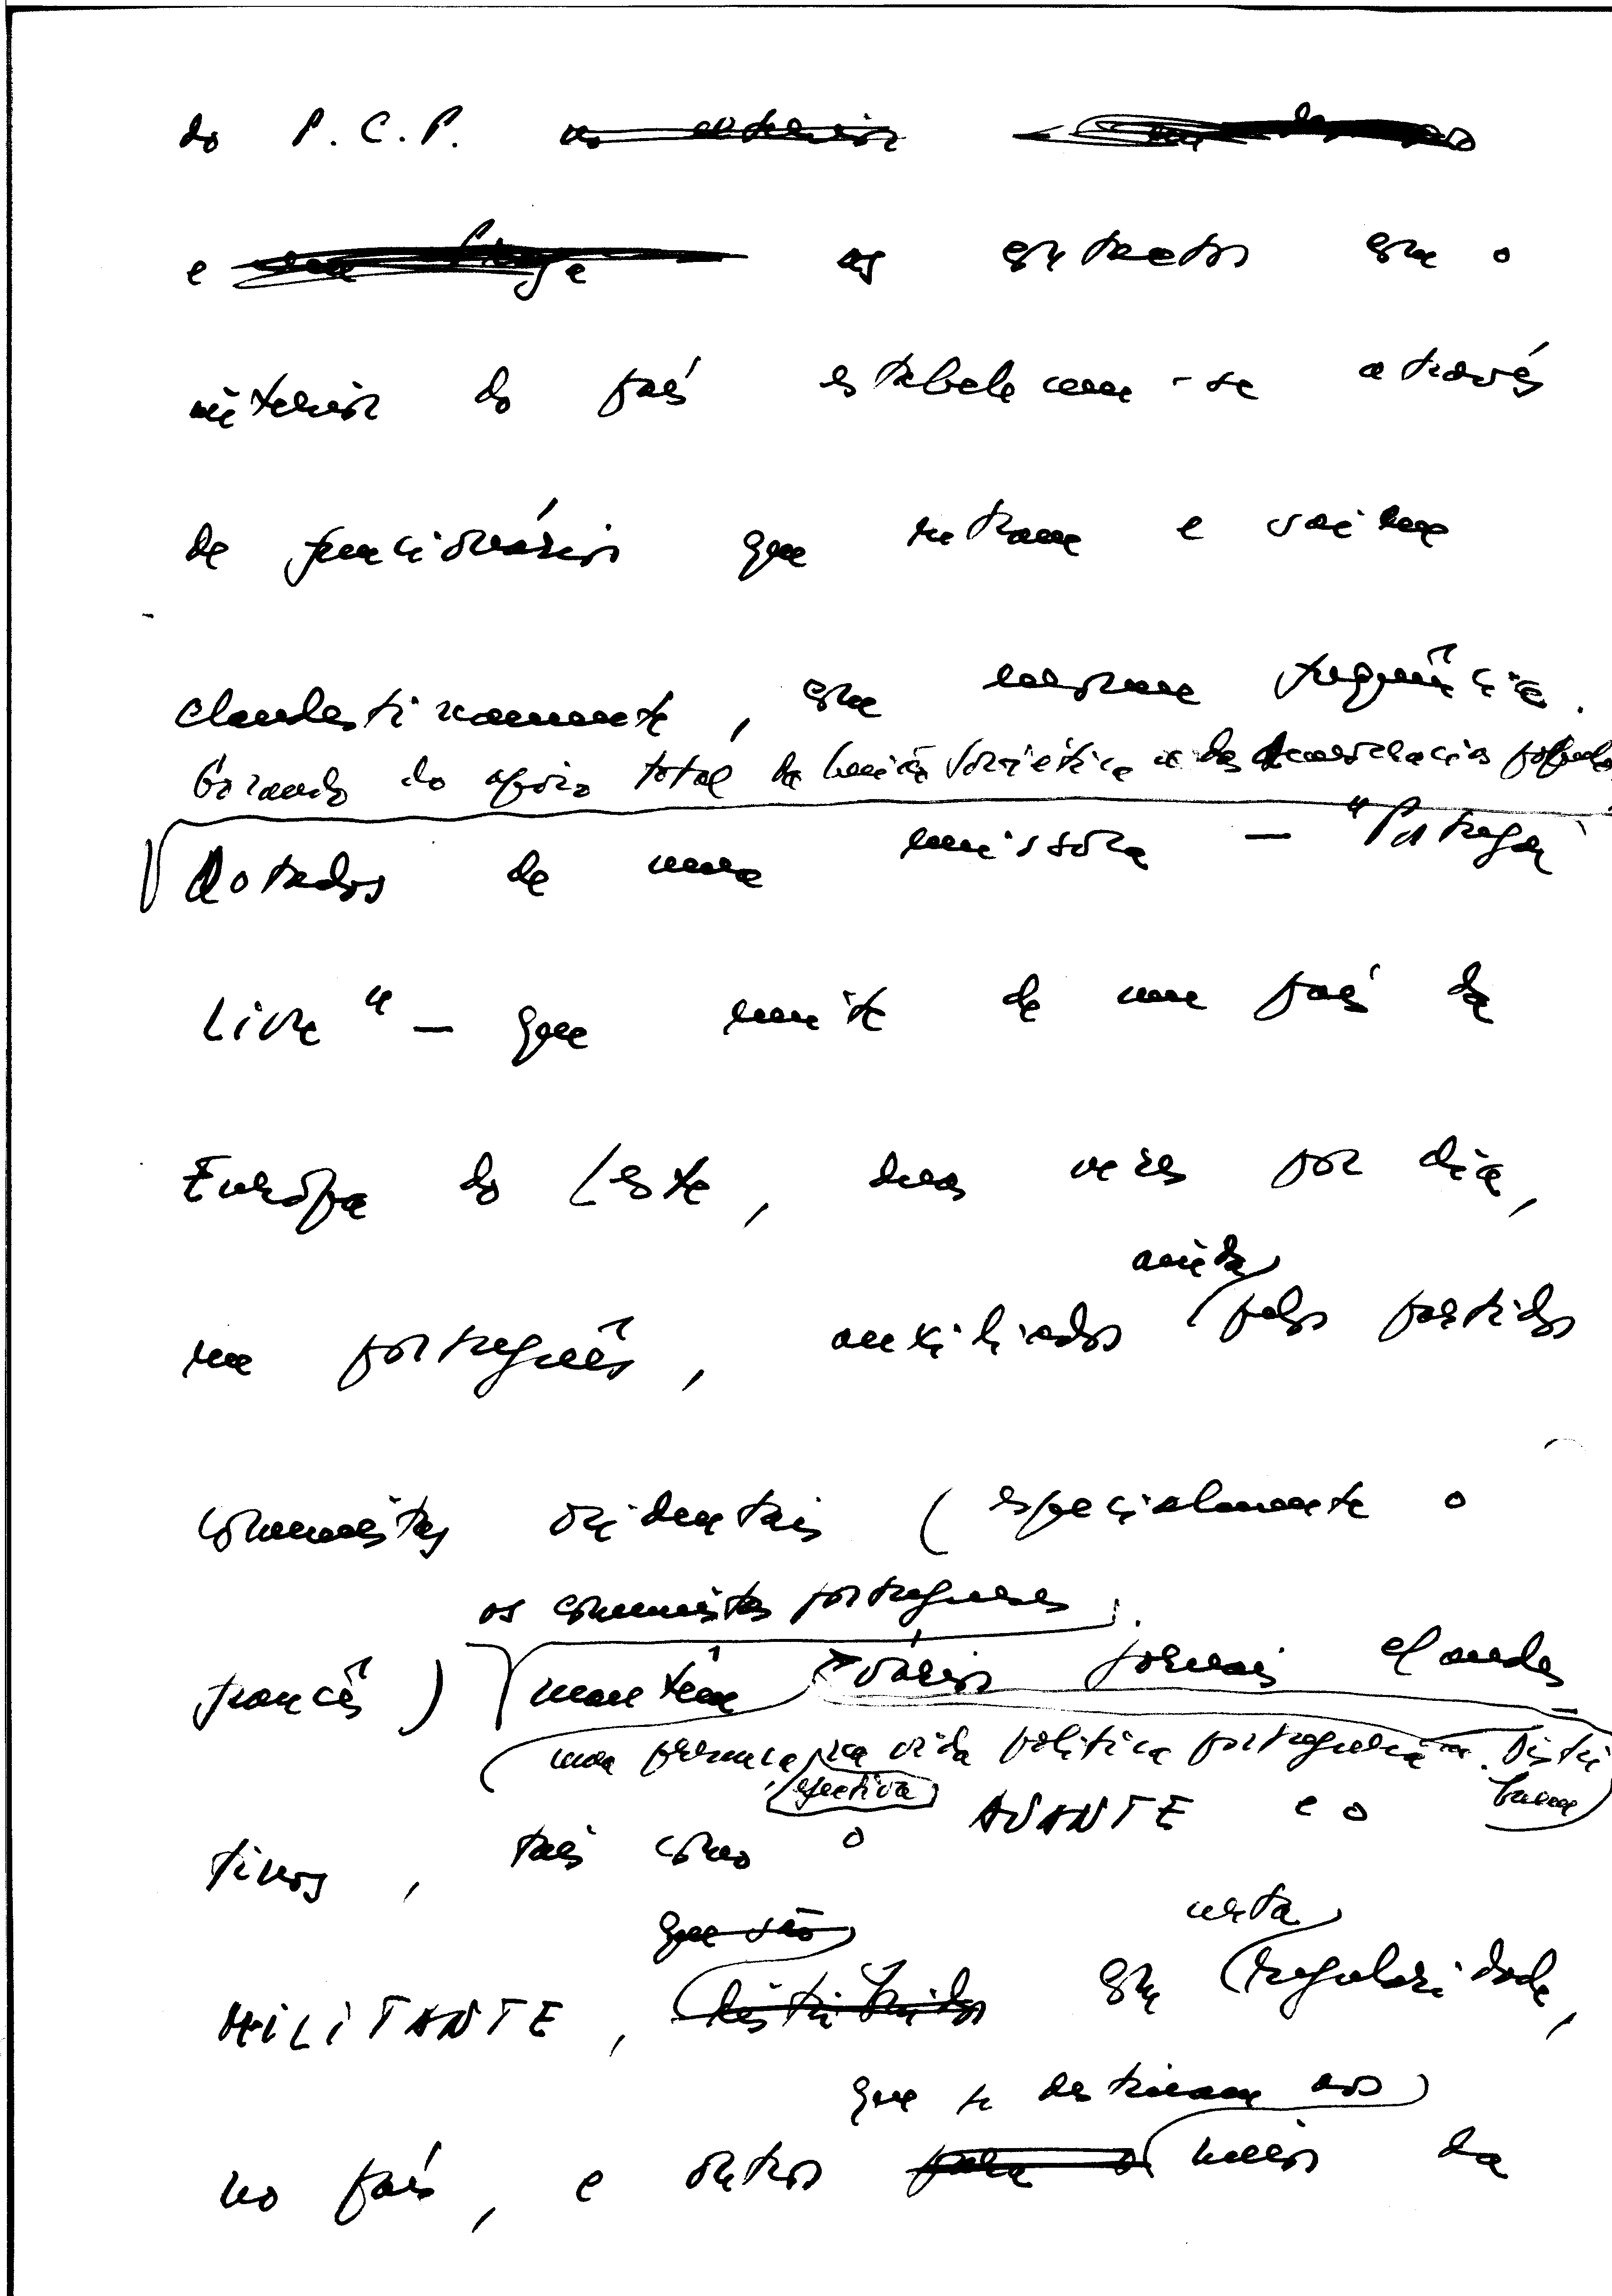 do P. C. P. no exterior
e em Praga os contactos com o
interior do país estabelecem-se através
de funcionários que entram e saiem
clandestinamente, com enorme frequência.
Gozando do apoio total da União Soviética e das democracias popula
Dotados de uma emissora — "Portugal
Livre" — que emite de um país da
Europa do Leste, duas vezes por dia,
ainda
em português, auxiliados pelos partidos
comunistas ocidentais (especialmente o
os comunistas portugueses
francês) mantêm vários jornais clandes
uma presença na vida política portuguesa. Distri
efectiva buem
tinos, tais como o AVANTE e o
que são certa
MILITANTE, distribuidos com regularidade,
que se destinam aos
no país, e outros para o meios da